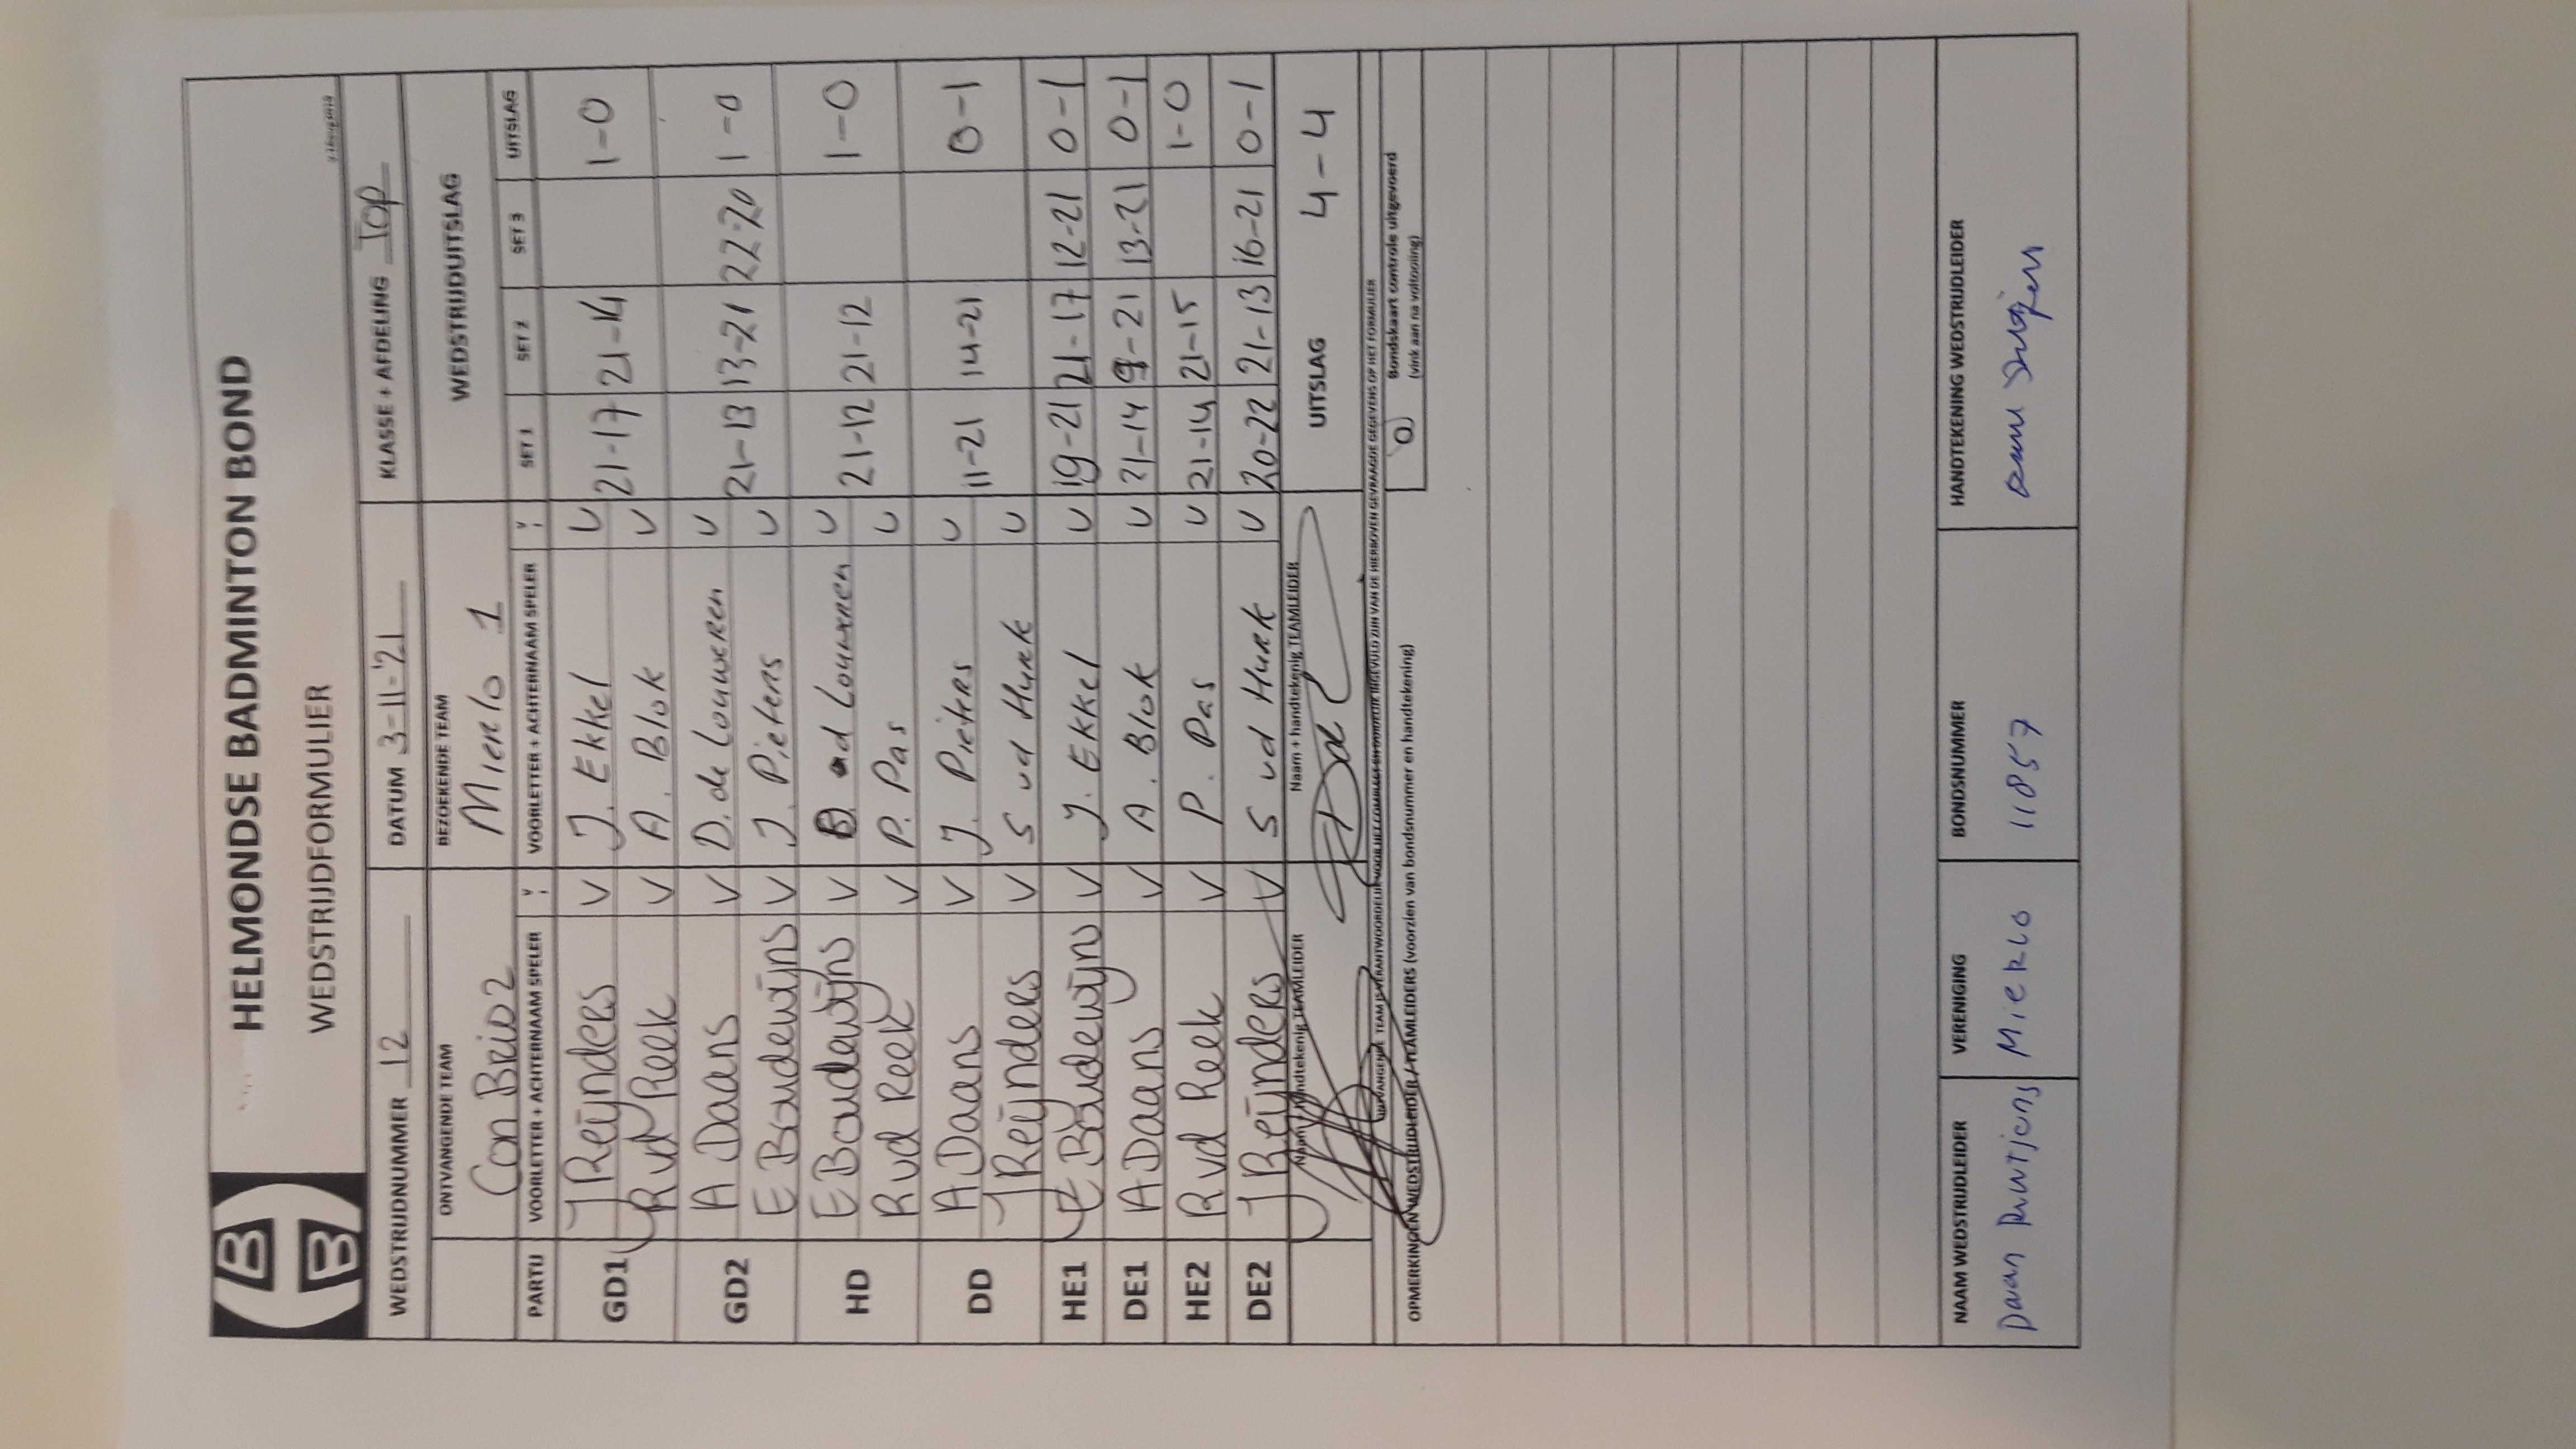 HELMONDSE BADMINTON BOND
WEDSTRIJDFORMULIER
WEDSTRIJDNUMMER 12 DATUM 3-11-'21 KLASSE + AFDELING TOP
ONTVANGENDE TEAM BEZOEKENDE TEAM WEDSTRIJDUITSLAG
Con Brio 2 Mierlo 1
PARTIJ VOORLETTER + ACHTERNAAM SPELER VOORLETTER + ACHTERNAAM SPELER SET 1 SET 2 SET 3 UITSLAG
GD1 J Reijnders V J. Ekkel V 21-17 21-14 1-0
R vd Reek V A. Blok V
GD2 A Daans V D. de Louweren V 21-13 13-21 22-20 1-0
E Boudewijns V J. Pieters V
HD E Boudewijns V D. de Louweren V 21-12 21-12 1-0
R vd Reek V P. Pas V
DD A Daans V J. Pieters V 11-21 14-21 0-1
J Reijnders V S vd Hurk V
HE1 E Boudewijns V J. Ekkel V 19-21 21-17 12-21 0-1
DE1 A Daans V A. Blok V 21-14 9-21 13-21 0-1
HE2 R vd Reek V P. Pas V 21-14 21-15 1-0
DE2 J Reijnders V S vd Hurk V 20-22 21-13 16-21 0-1
Naam + handtekenig TEAMLEIDER Naam + handtekenig TEAMLEIDER UITSLAG 4-4
ONTVANGENDE TEAM IS VERANTWOORDELIJK VOOR HET COMPLEET EN DUIDELIJK INGEVULD ZIJN VAN DE HIERBOVEN GEVRAAGDE GEGEVENS OP HET FORMULIER
OPMERKINGEN WEDSTRIJDLEIDER / TEAMLEIDERS (voorzien van bondsnummer en handtekening)
O Bondskaart controle uitgevoerd
(vink aan na voltooiing)
NAAM WEDSTRIJDLEIDER VERENIGING BONDSNUMMER HANDTEKENING WEDSTRIJDLEIDER
Daan Rutjens Mierlo 11857